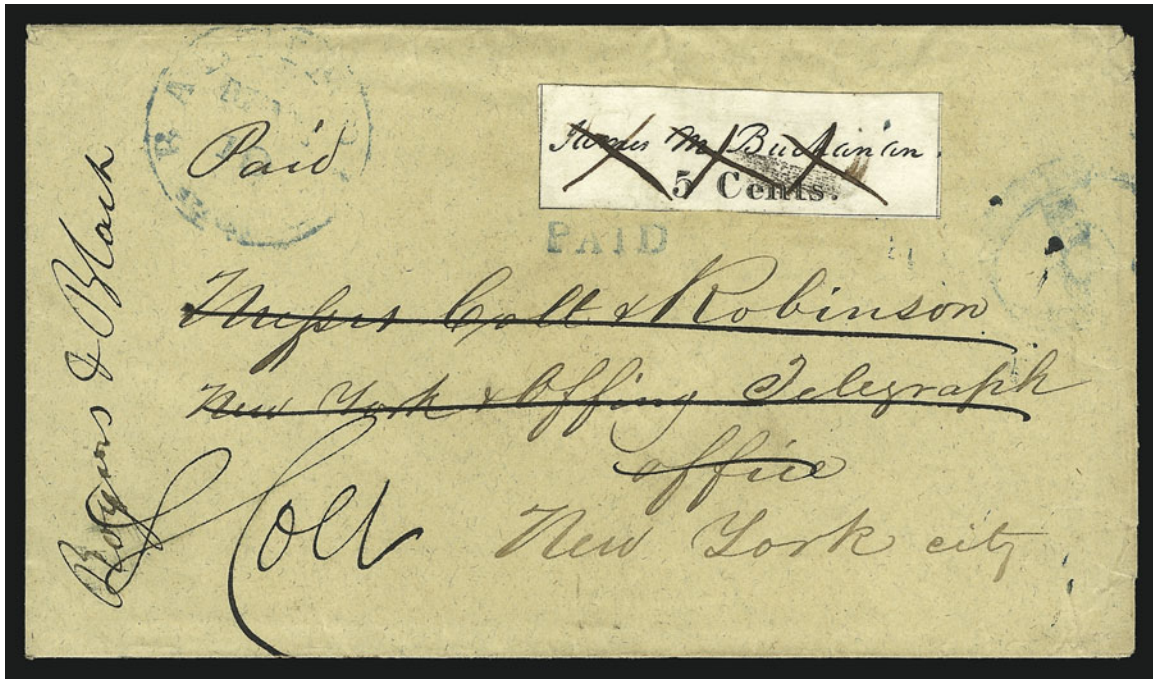 Paid
James M. Buchanan.
5 Cents.
PAID
5
Messrs Colt & Robinson
New York & Offing Telegraph
office
New York city
Colt